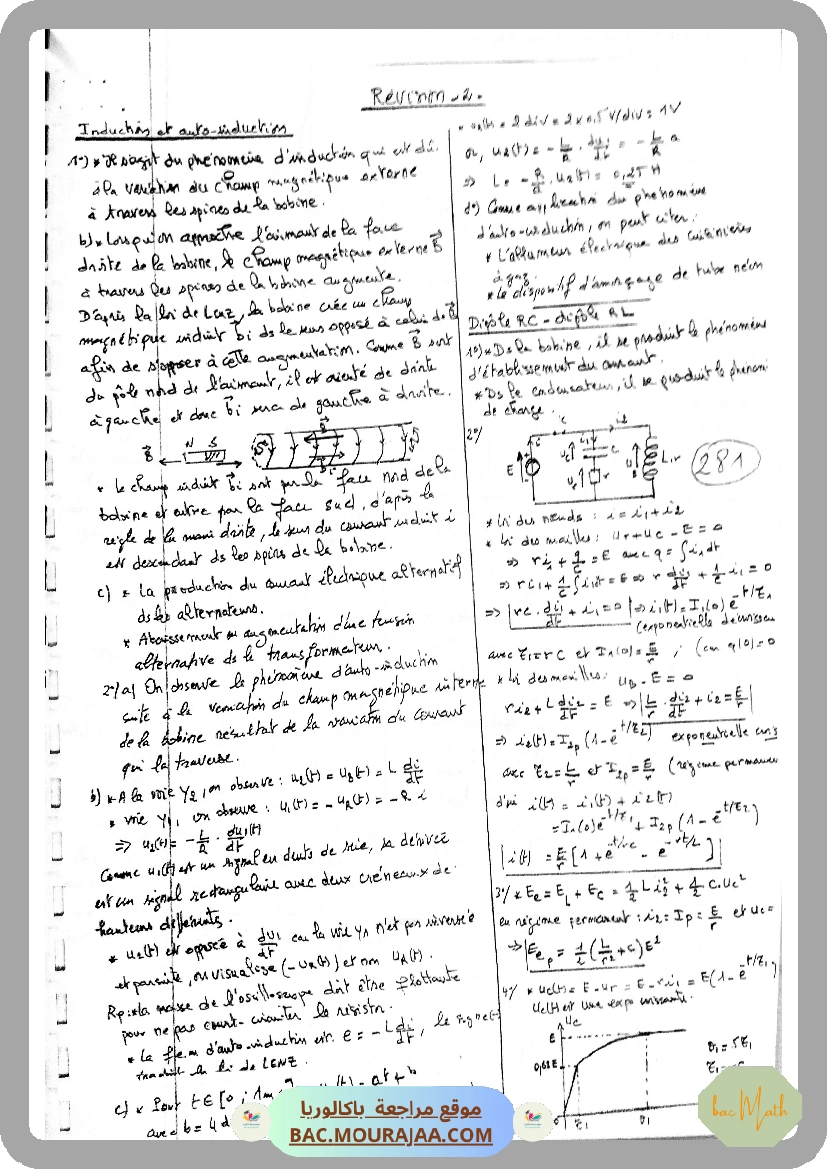 Révision - 2 -
Induction et auto-induction
1°) * Il s'agit du phénomène d'induction qui est dû
à la variation du champ magnétique externe
à travers les spires de la bobine.
b) * Lorsqu'on approche l'aimant de la face
droite de la bobine, le champ magnétique externe B⃗
à travers les spires de la bobine augmente.
D'après la loi de Lenz, la bobine crée un champ
magnétique induit b⃗i ds le sens opposé à celui de B⃗
afin de s'opposer à cette augmentation. Comme B⃗ sort
du pôle nord de l'aimant, il est orienté de droite
à gauche et donc b⃗i sera de gauche à droite.
B⃗ N S
* Le champ induit b⃗i sort par la face nord de la
bobine et entre par la face sud, d'après la
règle de la main droite, le sens du courant induit i
est descendant ds les spires de la bobine.
c) * La production du courant électrique alternatif
ds les alternateurs.
* Abaissement ou augmentation d'une tension
alternative ds le transformateur.
2°/ a) On observe le phénomène d'auto-induction
suite à la variation du champ magnétique interne
de la bobine résultat de la variation du courant
qui la traverse.
b) * A la voie Y2, on observe : u2(t) = uB(t) = L di/dt
* voie Y1, on observe : u1(t) = - uR(t) = - R i
=> u2(t) = - L/R . du1(t)/dt
Comme u1(t) est un signal en dents de scie, sa dérivée
est un signal rectangulaire avec deux créneaux de
hauteurs différents.
* u2(t) est opposée à du1/dt car la voie Y1 n'est pas inversée
et par suite, on visualise (-uR(t)) et non uR(t).
Rq : * la masse de l'oscilloscope doit être flottante
pour ne pas court-circuiter le résistor.
* La f.e.m d'auto-induction est e = - L di/dt, le signe (-)
traduit la loi de LENZ.
c) * Pour t ∈ [0 ; 1m
avec b = 4 d
= 2 div = 2 x 0,5 V/div = 1V
or, u2(t) = - L/R . du1/dt = - L/R a
=> L = - R/a . u2(t) = 0,25 H
d°) Comme application du phénomène
d'auto-induction, on peut citer :
* L'allumeur électrique des cuisinières
à gaz.
* Le dispositif d'amorçage de tube néon
Dipôle RC - dipôle RL
1°) * Ds la bobine, il se produit le phénomène
d'établissement du courant.
* Ds le condensateur, il se produit le phénomè-
de charge.
2°/
E
281
* loi des nœuds : i = i1 + i2
* loi des mailles : ur + uc - E = 0
=> r i1 + q/c = E avec q = ∫ i1 dt
=> r i1 + 1/c ∫ i1 dt = E => r di1/dt + 1/c i1 = 0
=> rc . di1/dt + i1 = 0 => i1(t) = I1(0) e^(-t/τ1)
avec τ1 = rC et I1(0) = E/r ; (car q(0) = 0
* loi des mailles : uB - E = 0
r i2 + L di2/dt = E => L/r . di2/dt + i2 = E/r
=> i2(t) = I2p (1 - e^(-t/τ2)) exponentielle
avec τ2 = L/r et I2p = E/r (régime permanen
d'où i(t) = i1(t) + i2(t)
= I1(0) e^(-t/τ1) + I2p (1 - e^(-t/τ2))
i(t) = E/r [1 + e^(-t/rc) - e^(-rt/L)]
3°/ * Ee = EL + EC = 1/2 L i2² + 1/2 C.uc²
en régime permanent : i2 = Ip = E/r et uc =
=> Eep = 1/2 (L/r² + c) E²
4°/ * uc(t) = E - ur = E - r i1 = E (1 - e^(-t/τ1))
uc(t) est une expo croissante.
uc
E
0,63E
τ1
θ1
θ1 = 5τ1
موقع مراجعة باكالوريا
BAC.MOURAJAA.COM
bac Math